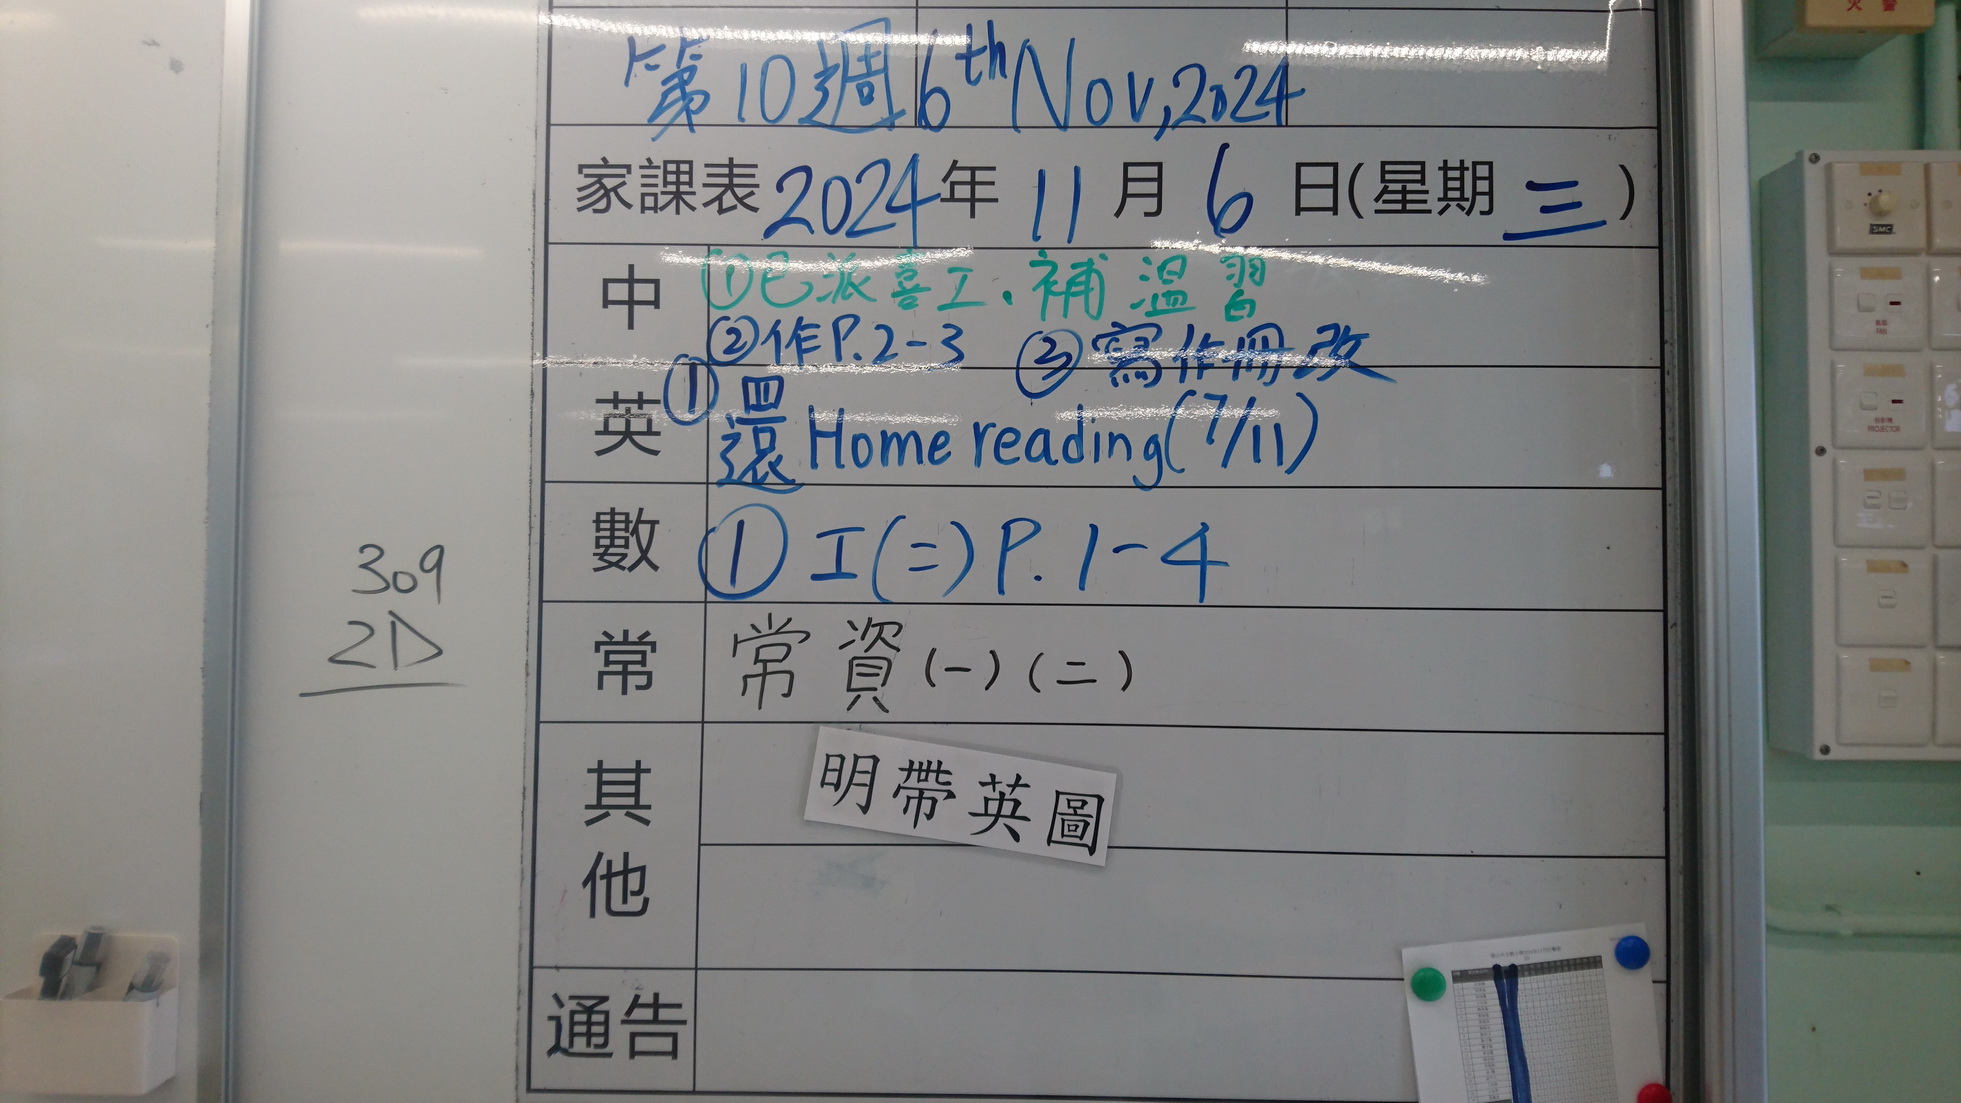 火警
第10週 6th Nov, 2024
家課表 2024年 11月 6日(星期三)
中 ①已派喜工.補溫習
②作P.2-3 ③寫作冊改
英 ①還Home reading(7/11)
四
數 ①工(二)P.1-4
常 常資(一)(二)
其他 明帶英圖
通告
309
2D
SMC
FAN
PROJECTOR